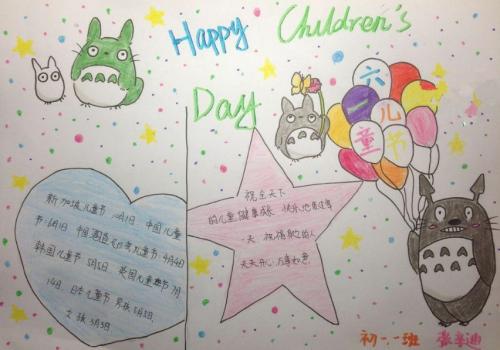 Happy Children's
Day
六一儿童节
新加坡儿童节 10月1日 中国儿童
节6月1日 中国香港 儿童节 4月4日
韩国儿童节 5月5日 英国儿童节 7月
14日. 日本儿童节 男孩5月5日.
女孩3月3日
祝全天下
的儿童健康成长 快乐地度过每
一天 祝福身边的人
天天开心 万事如意
初一一班